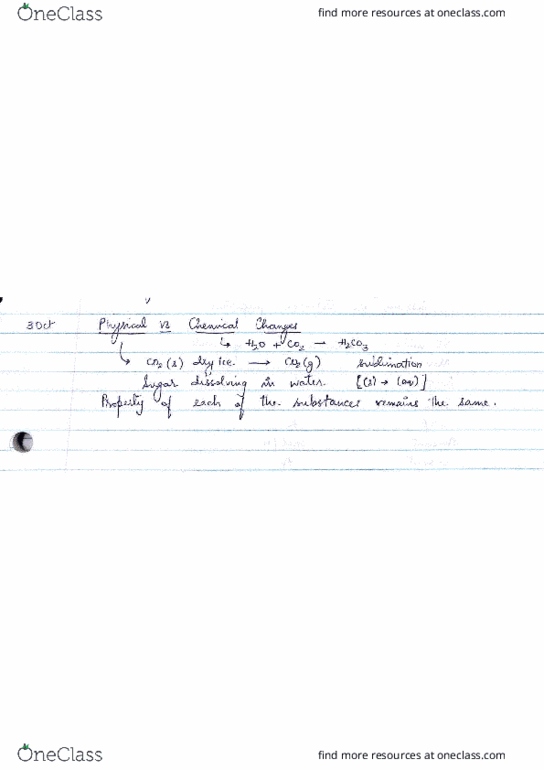 OneClass
find more resources at oneclass.com
3 Oct Physical vs Chemical Changes
↳ H₂O + CO₂ → H₂CO₃
↳ CO₂ (s) dry ice. → CO₂ (g) sublimation
Sugar dissolving in water. [(s) → (aq)]
Property of each of the substances remains the same.
OneClass
find more resources at oneclass.com